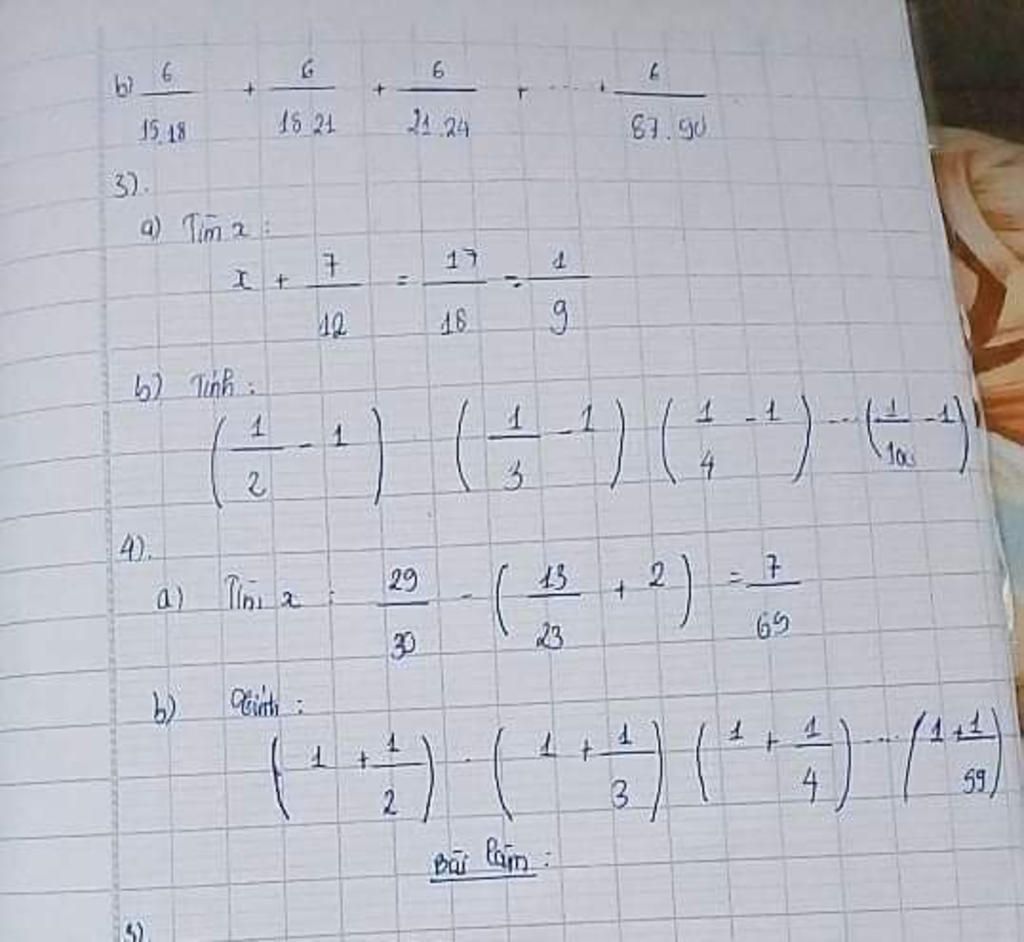 b) 6/15.18 + 6/18.21 + 6/21.24 + ... + 6/87.90
3).
a) Tìm x :
x + 7/12 = 17/18 - 1/9
b) Tính :
(1/2 - 1) (1/3 - 1) (1/4 - 1) ... (1/100 - 1)
4).
a) Tìm x : 29/30 - (13/23 + 2) = 7/69
b) Tính :
(1 + 1/2) . (1 + 1/3) (1 + 1/4) ... (1 + 1/99)
Bài làm :